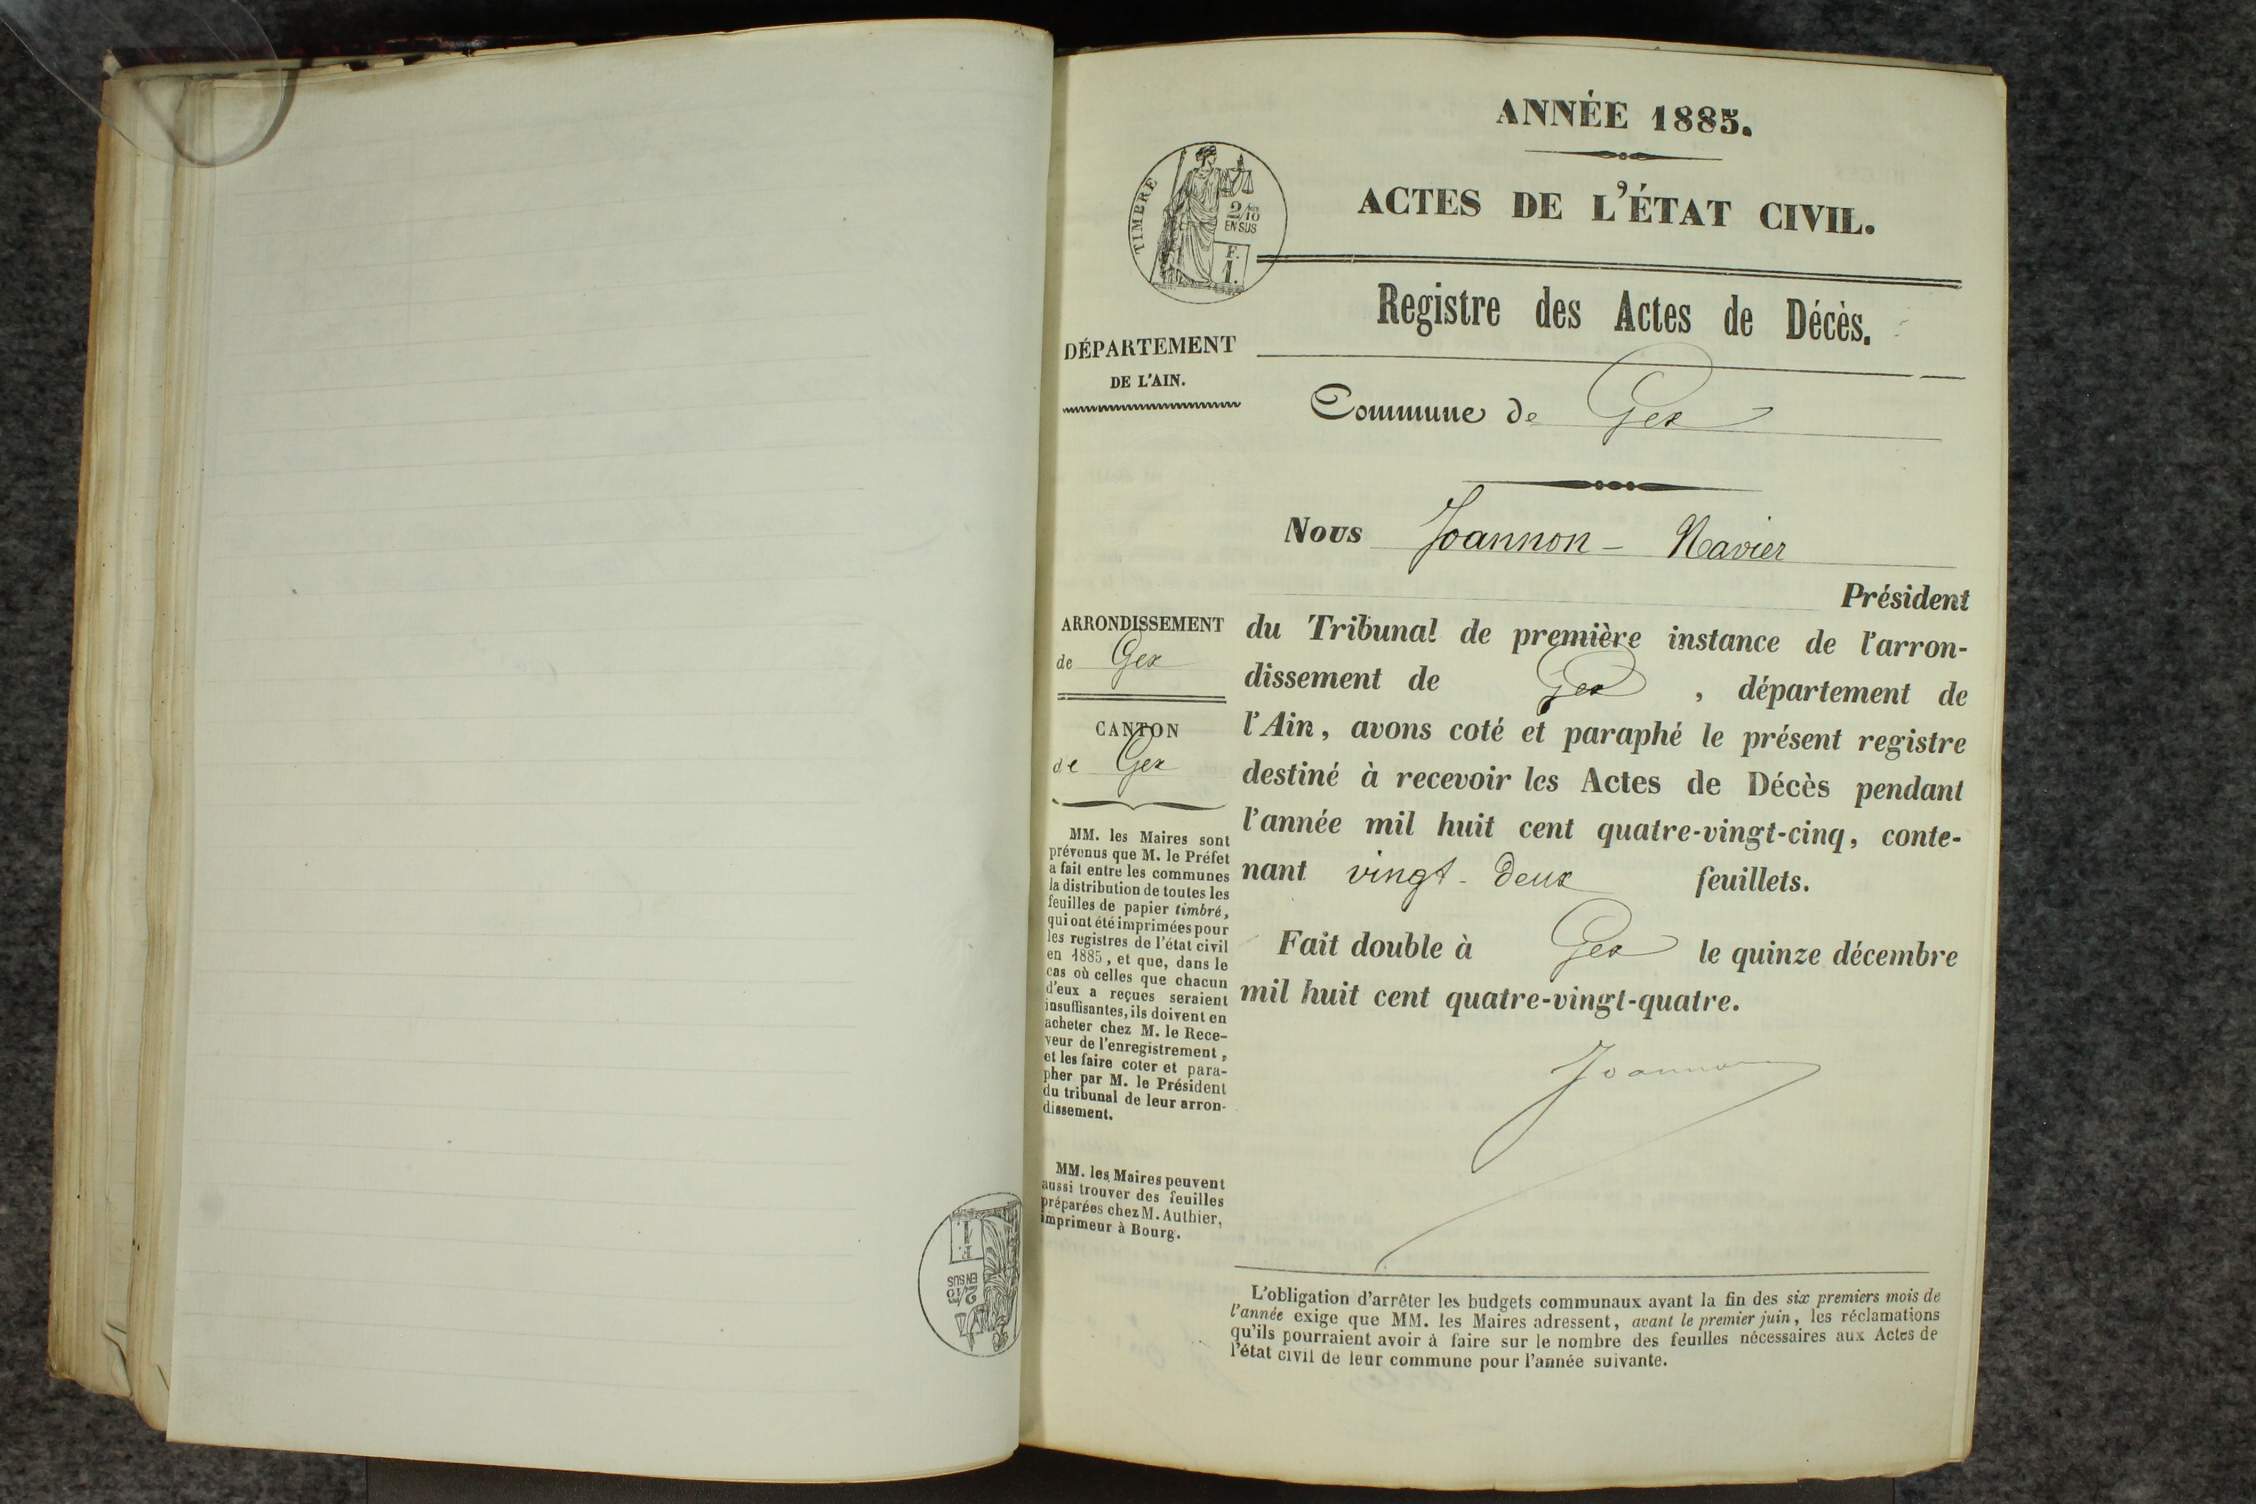 ANNÉE 1885.
ACTES DE L'ÉTAT CIVIL.
TIMBRE
2/10
EN SUS
F.
1.
Registre des Actes de Décès.
DÉPARTEMENT
DE L'AIN.
Commune de Gex
Nous Joannon - Xavier
Président
du Tribunal de première instance de l'arron-
dissement de Gex , département de
l'Ain, avons coté et paraphé le présent registre
destiné à recevoir les Actes de Décès pendant
l'année mil huit cent quatre-vingt-cinq, conte-
nant vingt-deux feuillets.
Fait double à Gex le quinze décembre
mil huit cent quatre-vingt-quatre.
Joannon
ARRONDISSEMENT
de Gex
CANTON
de Gex
MM. les Maires sont
prévenus que M. le Préfet
a fait entre les communes
la distribution de toutes les
feuilles de papier timbré,
qui ont été imprimées pour
les registres de l'état civil
en 1885, et que, dans le
cas où celles que chacun
d'eux a reçues seraient
insuffisantes, ils doivent en
acheter chez M. le Rece-
veur de l'enregistrement,
et les faire coter et para-
pher par M. le Président
du tribunal de leur arron-
dissement.
MM. les Maires peuvent
aussi trouver des feuilles
préparées chez M. Authier,
imprimeur à Bourg.
L'obligation d'arrêter les budgets communaux avant la fin des six premiers mois de
l'année exige que MM. les Maires adressent, avant le premier juin, les réclamations
qu'ils pourraient avoir à faire sur le nombre des feuilles nécessaires aux Actes de
l'état civil de leur commune pour l'année suivante.
F.
1
2/10
EN SUS